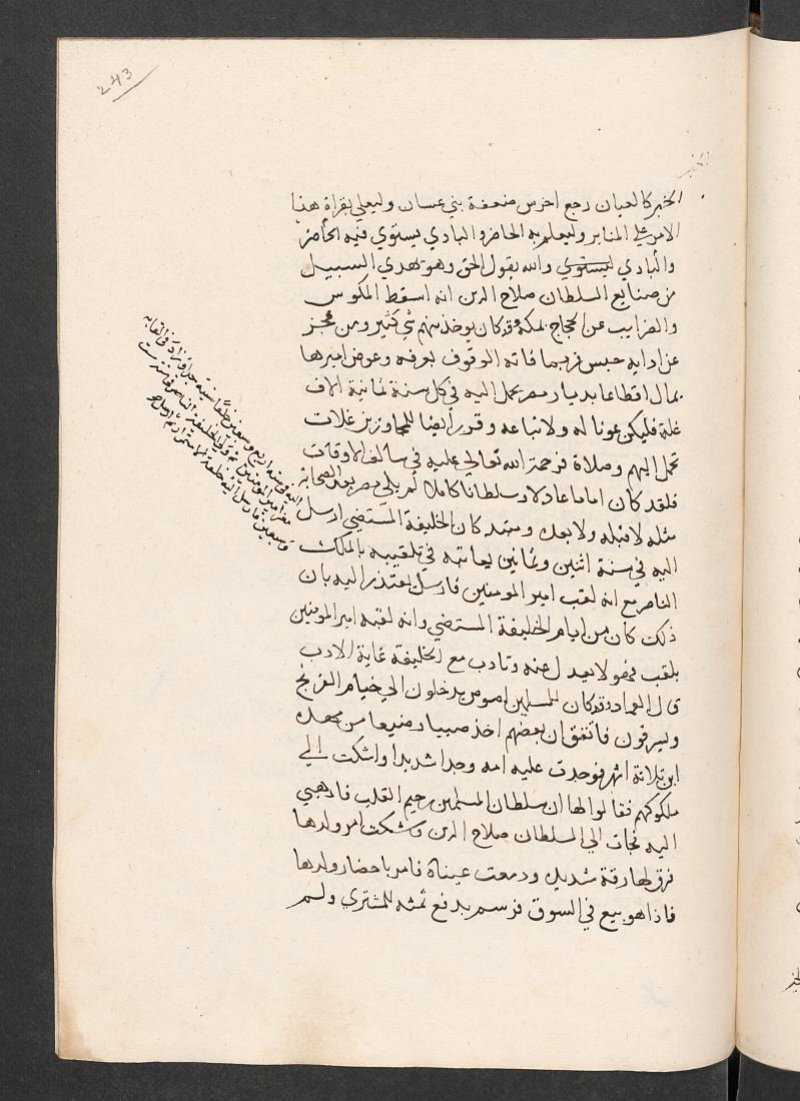 243
الخبر كالعيان رجع اخرس منعفة بني عسان وليعلي بقراة هذا
الامر علي المنابر وليعلم به الحاضر والبادي ليستوي فيه الحاضر
والبادي ليستوي والله يقول الحق وهو يهدي السبيل
من صنايع السلطان صلاح الدين انه اسقط المكوس
والضرايب عن الحجاج بمكة وقد كان يوخذ منهم شي كثير ومن عجز
عن ادايه حبس فربما فاته الوقوف بعرفه وعوض اميرها
بمال اقطاعا بديار مصر يحمل اليه في كل سنة ثمانية الاف
غلة فليكن عونا له ولاتباعه وقرر ايضا للمجاورين غلات
تحمل اليهم وصلاة فرحمة الله تعالي عليه في سالف الاوقات
فلقد كان اماما عادلا وسلطانا كاملا لم يلي مصر بعد الصحابة
مثله لا قبله ولا بعده وقد كان الخليفة المستضي ارسل
اليه في سنة اثنين وثمانين يعاتبه في تلقيبه بالملك
الناصر مع انه لقب امير المومنين فارسل يعتذر اليه بان
ذلك كان من ايام الخليفة المستضي وانه لقبه امير المومنين
بلقب فهو لا يعدل عنه وتادب مع الخليفة غاية الادب
قال العماد وقد كان للمسلمين لصوص يدخلون الي خيام الفرنج
ويسرقون فاتفق ان بعضهم اخذ صبيا رضيعا من مهده
ابن ثلاثة اشهر فوجدت عليه امه وجدا شديدا واشتكت الي
ملكوكهم فقالوا لها ان سلطان المسلمين رحيم القلب فاذهبي
اليه فجات الي السلطان صلاح الدين وشكت امر ولدها
فرق لها رقة شديدة ودمعت عيناه فامر باحضار ولدها
فاذا هو بيع في السوق فرسم بدفع ثمنه للمشتري ولم